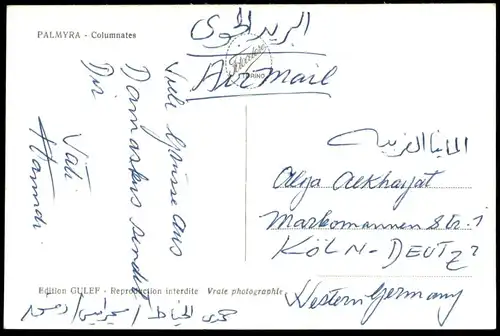 PALMYRA - Colonnates
البريد الجوي
AirMail
TORINO
Viele Grüsse aus
Damaskus sendet
Dir
Vati
Hamdi
المانيا الغربية
Alya Alkhayat
Markomannen Str. 1
KÖLN-DEUTZ
Western Germany
Edition GULEF - Reproduction interdite Vraie photographie
حمدي الخياط / / دمشق